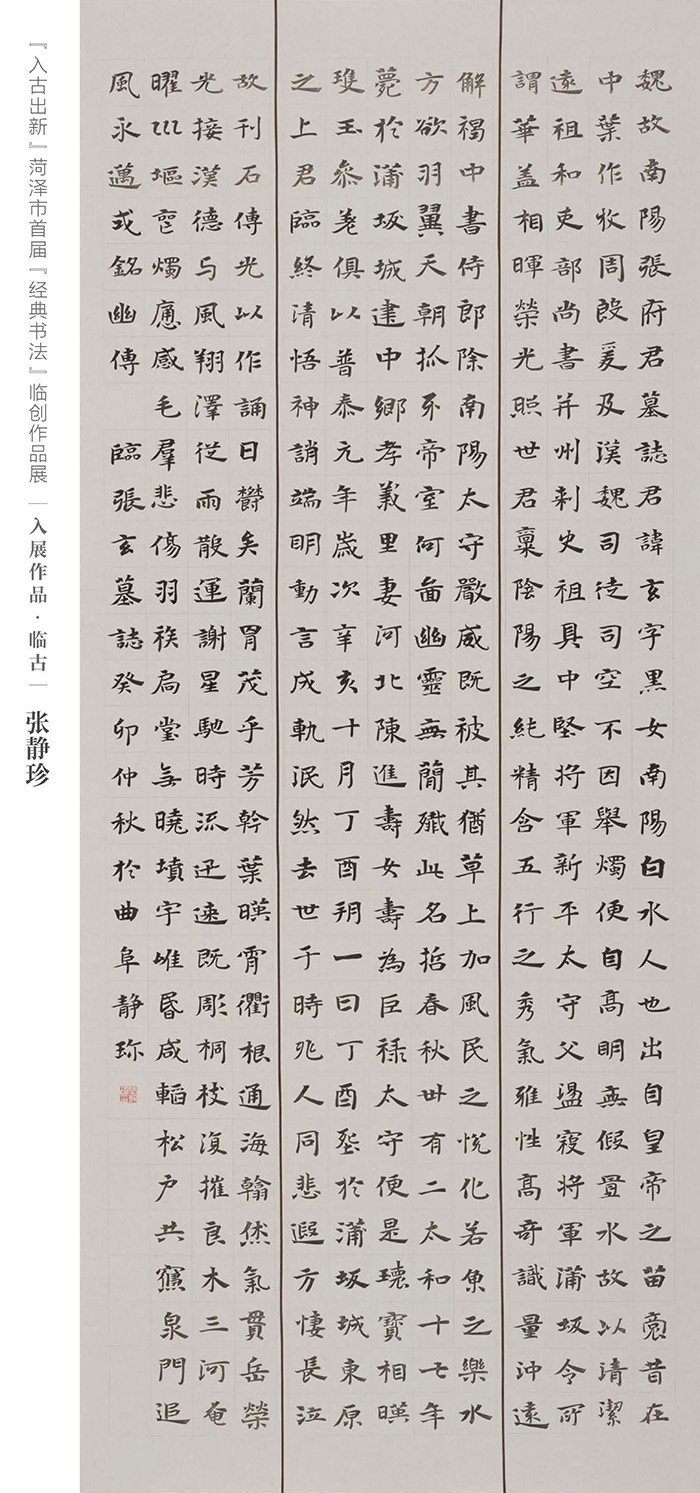 魏故南陽張府君墓誌君諱玄字黑女南陽白水人也出自皇帝之苗裔昔在
中葉作牧周殷爰及漢魏司徒司空不因舉燭便自高明無假置水故以清潔
遠祖和吏部尚書并州刺史祖具中堅將軍新平太守父盪寇將軍蒲坂令所
謂華盖相暉榮光照世君稟陰陽之純精含五行之秀氣雅性高奇識量沖遠
解褐中書侍郎除南陽太守嚴威既被其猶草上加風民之悅化若魚之樂水
方欲羽翼天朝抓牙帝室何啚幽靈無簡殲此名哲春秋卅有二太和十七年
薨於蒲坂城建中鄉孝義里妻河北陳進壽女壽為巨祿太守便是瓌寶相暎
瓊玉參差俱以普泰元年歲次辛亥十月丁酉朔一日丁酉葬於蒲坂城東原
之上君臨終清悟神誚端明動言成軌泯然去世于時兆人同悲遐方悽長泣
故刊石傳光以作誦曰鬱矣蘭胄茂乎芳幹葉暎霄衢根通海翰氣貫岳榮
光接漢德与風翔澤從雨散運謝星馳時流迅速既彫桐枝復摧良木三河奄
曜巛堀燭應感毛羣悲傷羽族扃堂無曉墳宇唯昏咸韜松户共寢泉門追
風永邁式銘幽傳 臨張玄墓誌癸卯仲秋於曲阜静珎
『入古出新』菏泽市首届『经典书法』临创作品展｜入展作品·临古｜张静珍